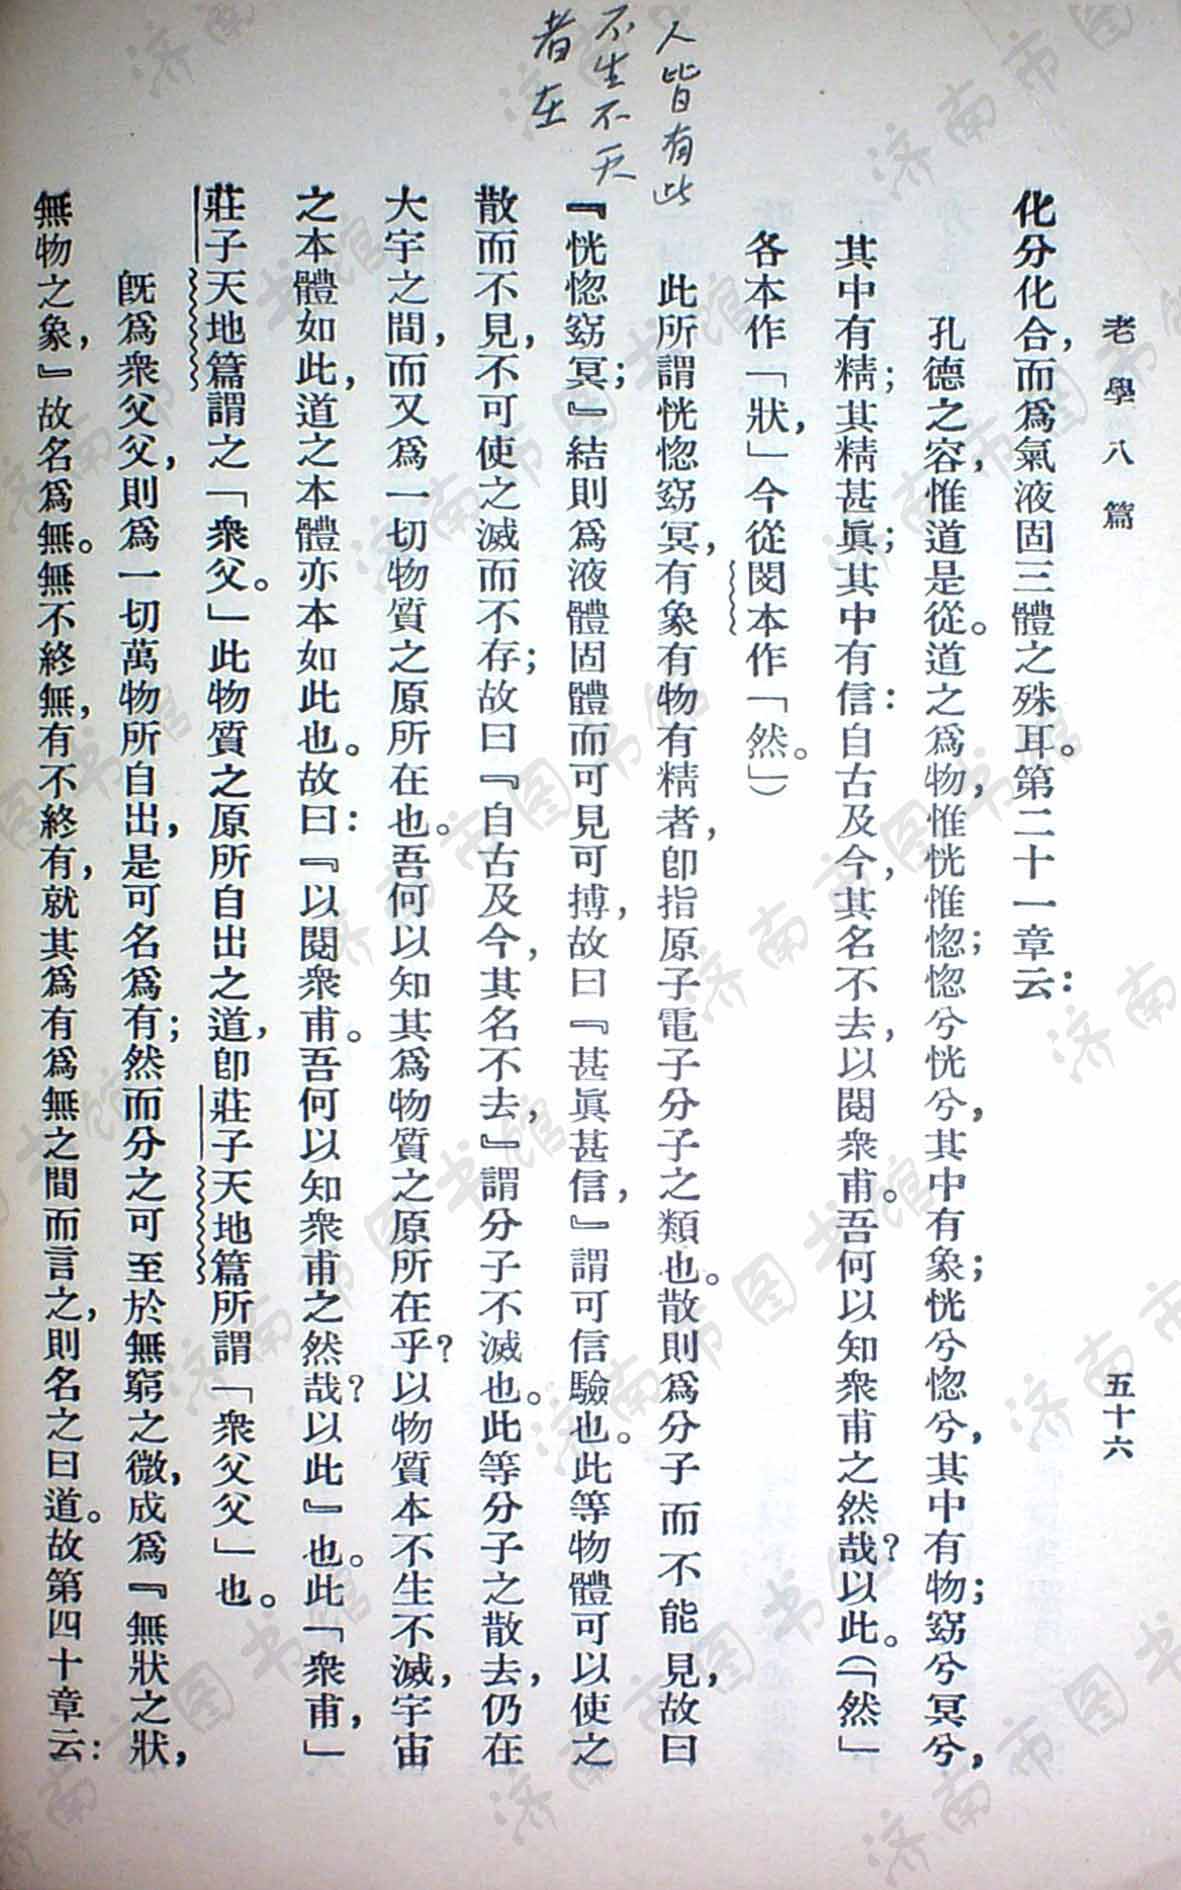 人皆有此
不生不灭
者在
老學八篇
五十六
化分化合，而爲氣液固三體之殊耳。第二十一章云：
孔德之容，惟道是從。道之爲物，惟恍惟惚；惚兮恍兮，其中有象；恍兮惚兮，其中有物；窈兮冥兮，
其中有精；其精甚眞；其中有信：自古及今，其名不去，以閱衆甫。吾何以知衆甫之然哉？以此。（「然」
各本作「狀，」今從閔本作「然。」）
此所謂恍惚窈冥，有象有物有精者，卽指原子電子分子之類也。散則爲分子而不能見，故曰
『恍惚窈冥；』結則爲液體固體而可見可搏，故曰『甚眞甚信，』謂可信驗也。此等物體可以使之
散而不見，不可使之滅而不存；故曰『自古及今，其名不去，』謂分子不滅也。此等分子之散去，仍在
大宇之間，而又爲一切物質之原所在也。吾何以知其爲物質之原所在乎？以物質本不生不滅，宇宙
之本體如此，道之本體亦本如此也。故曰：『以閱衆甫。吾何以知衆甫之然哉？以此』也。此「衆甫，」
莊子天地篇謂之「衆父。」此物質之原所自出之道，卽莊子天地篇所謂「衆父父」也。
旣爲衆父父，則爲一切萬物所自出，是可名爲有；然而分之可至於無窮之微，成爲『無狀之狀，
無物之象，』故名爲無。無不終無，有不終有，就其爲有爲無之間而言之，則名之曰道。故第四十章云：
济南市图书馆